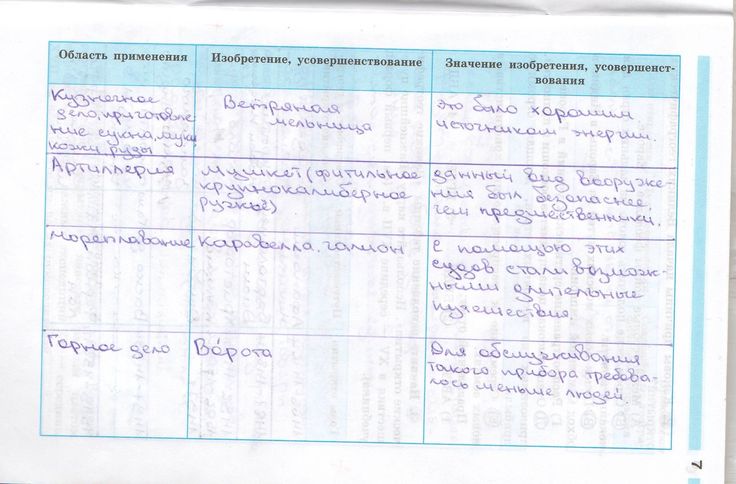 Область применения
Изобретение, усовершенствование
Значение изобретения, усовершенст-
вования
Кузнечное
дело, приготовле-
ние сукна, муки
кожи, руды
Ветряная
мельница
это было хорошим
источником энергии.
Артиллерия
Мушкет (фитильное
крупнокалиберное
ружьё)
данный вид вооруже-
ния был безопаснее,
чем предшественники.
мореплавание
Каравелла, галион
С помощью этих
судов стали возмож-
ными длительные
путешествия
Горное дело
Во́рота
Для обслуживания
такого прибора требова-
лось меньше людей.
7